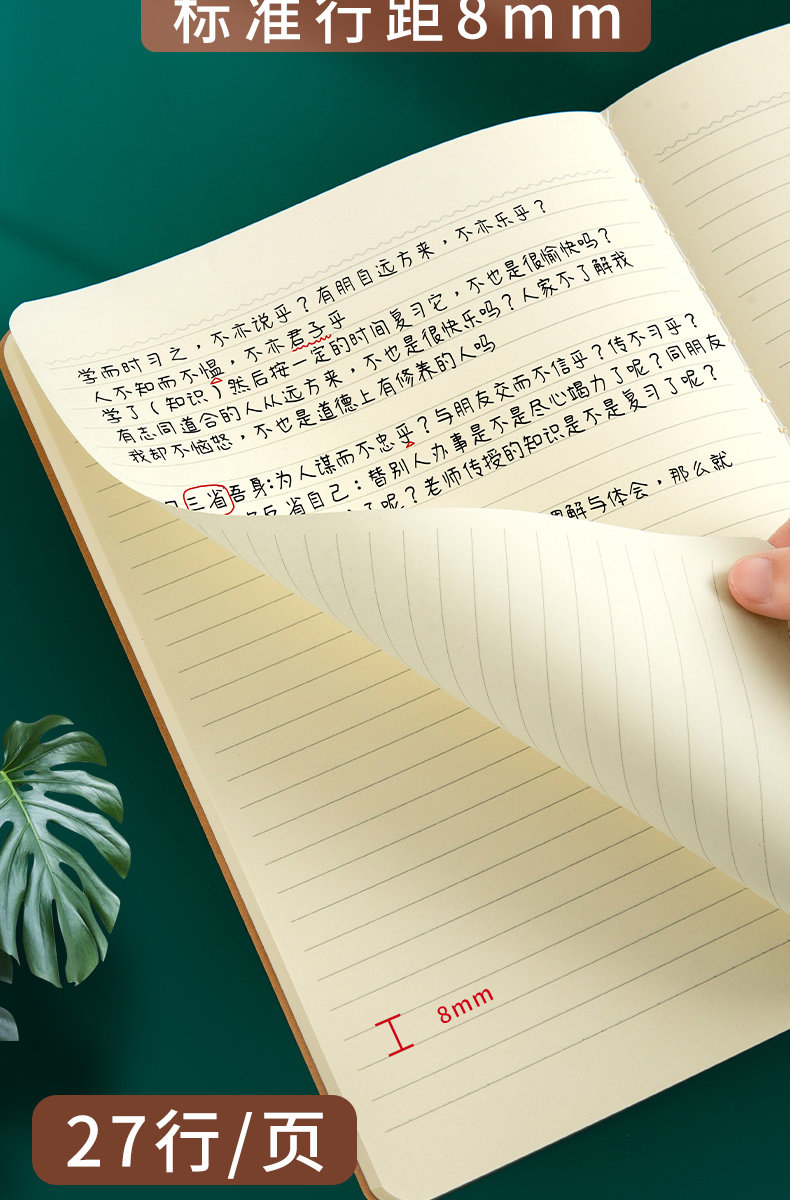 标准行距8mm
学而时习之，不亦说乎？有朋自远方来，不亦乐乎？
人不知而不愠，不亦君子乎
学了（知识）然后按一定的时间复习它，不也是很愉快吗？
有志同道合的人从远方来，不也是很快乐吗？人家不了解我
我却不恼怒，不也是道德上有修养的人吗
三省吾身:为人谋而不忠乎？与朋友交而不信乎？传不习乎？
反省自己：替别人办事是不是尽心竭力了呢？同朋友
了呢？老师传授的知识是不是复习了呢？
解与体会，那么就
8mm
27行/页